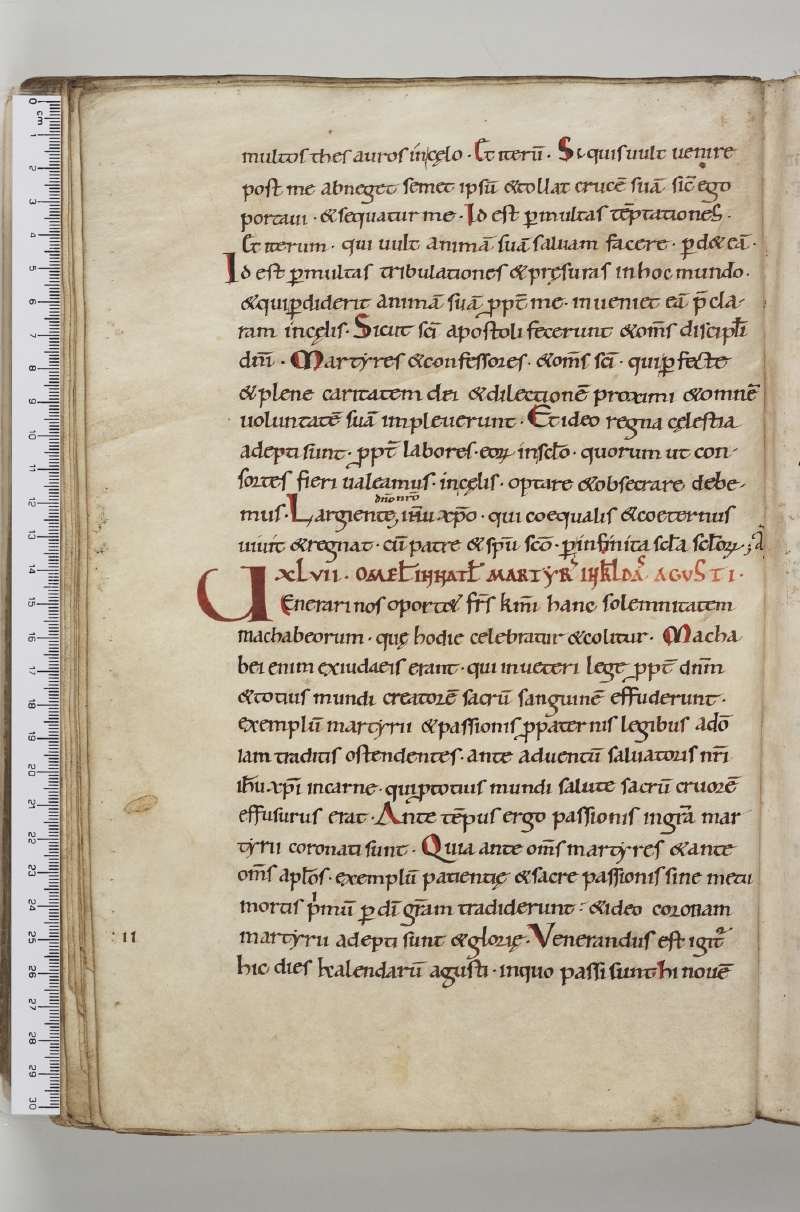 multos thesauros in celo · Et iterū · Si quis uult uenire
post me abneget semet ipsū &tollat crucē suā sic̄ ego
portaui · &sequatur me · Id est p̱ multas tēptationes ·
Et iterum · qui uult animā suā saluam facere · p̱d& eā ·
Id est p̱ multas tribulationes &pręsuras in hoc mundo ·
&qui p̱diderit animā suā ꝓpt̄ me · inueniet eā p̄cla-
ram in cęlis · Sicut sc̄i apostoli fecerunt &om̄s discipli
dn̄i · Martyres &confessores · &om̄s sc̄i · qui p̱fecte
&plene caritatem dei &dilectionē proximi &omnē
uoluntatē suā impleuerunt · Et ideo regna cęlestia
adepti sunt · ꝓpt̄ labores · eoꝝ in sc̄lo · quorum ut con-
sortes fieri ualeamus · in cęlis · optare &obsecrare debe-
dn̄o nr̄o
mus · Largiente, ih̄u xp̄o · qui coequalis &coeternus
uiuit &regnat · cū patre &sp̄u sc̄o · p̱ infinita sc̄la sc̄loꝝ ; a
XLVII · OMEL̄ IN NAT̄ MARTYR̄ IN KL̄DAS AGVSTI ·
Uenerari nos oport& fr̄s km̄i hanc solemnitatem
machabeorum · quę hodie celebratur &colitur · Macha
bei enim ex iudaeis erant · qui in ueteri lege ꝓpt̄ dn̄m
&totius mundi creatorē sacrū sanguinē effuderunt ·
exemplū martyrii &passionis ꝓ paternis legibus adō
lam traditis ostendentes · ante aduentū saluatoris nr̄i
ih̄u xp̄i in carne · qui ꝓ totius mundi salute sacrū cruorē
effusurus erat · Ante tēpus ergo passionis in gr̄a mar
tyrii coronati sunt · Quia ante om̄s martyres &ante
om̄s apl̄os · exemplū patientię &sacre passionis sine metu
mortis p̍mū p̱ dī gr̄am tradiderunt · &ideo coronam
: II martyrii adepti sunt &glorię · Venerandus est igit̄
hic dies kalendarū agusti · in quo passi sunt hi nouē